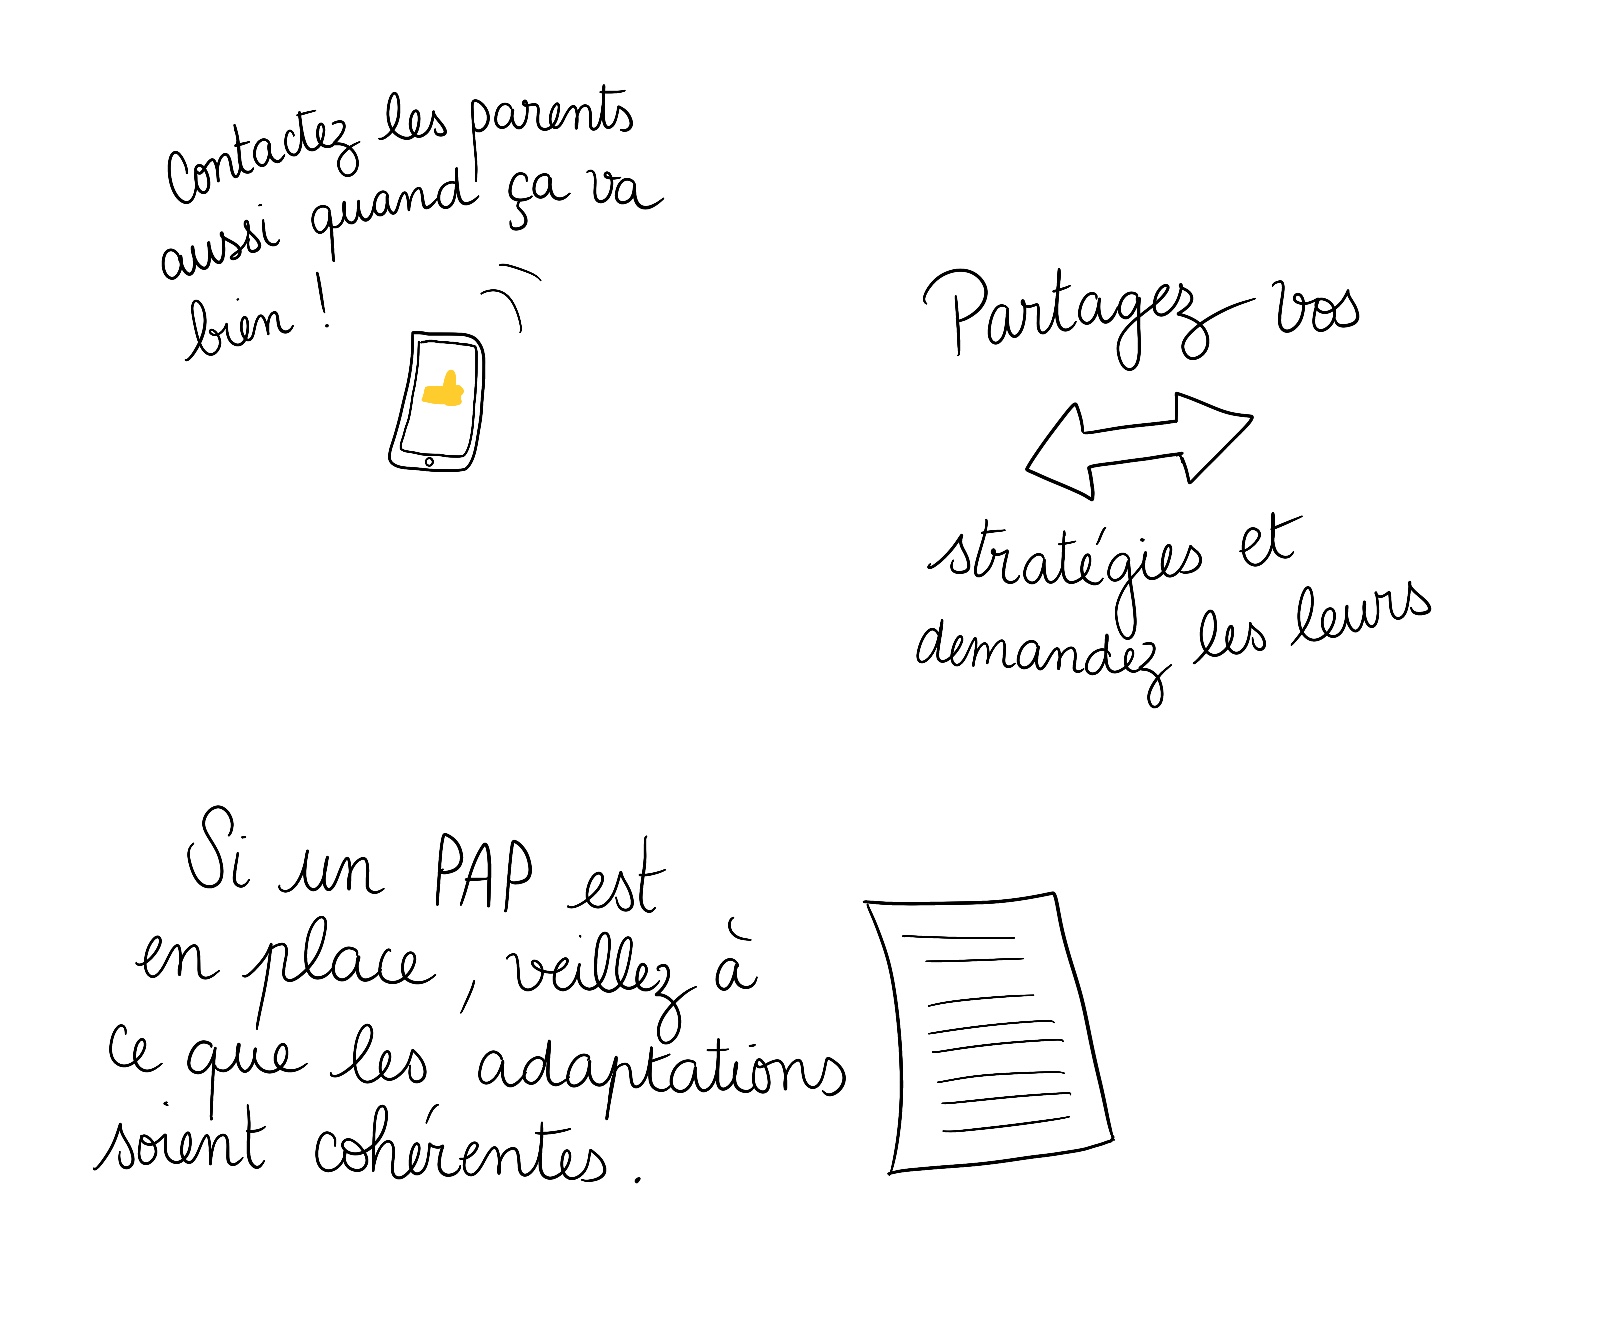 Contactez les parents
aussi quand ça va
bien !
Partagez vos
stratégies et
demandez les leurs
Si un PAP est
en place, veillez à
ce que les adaptations
soient cohérentes.